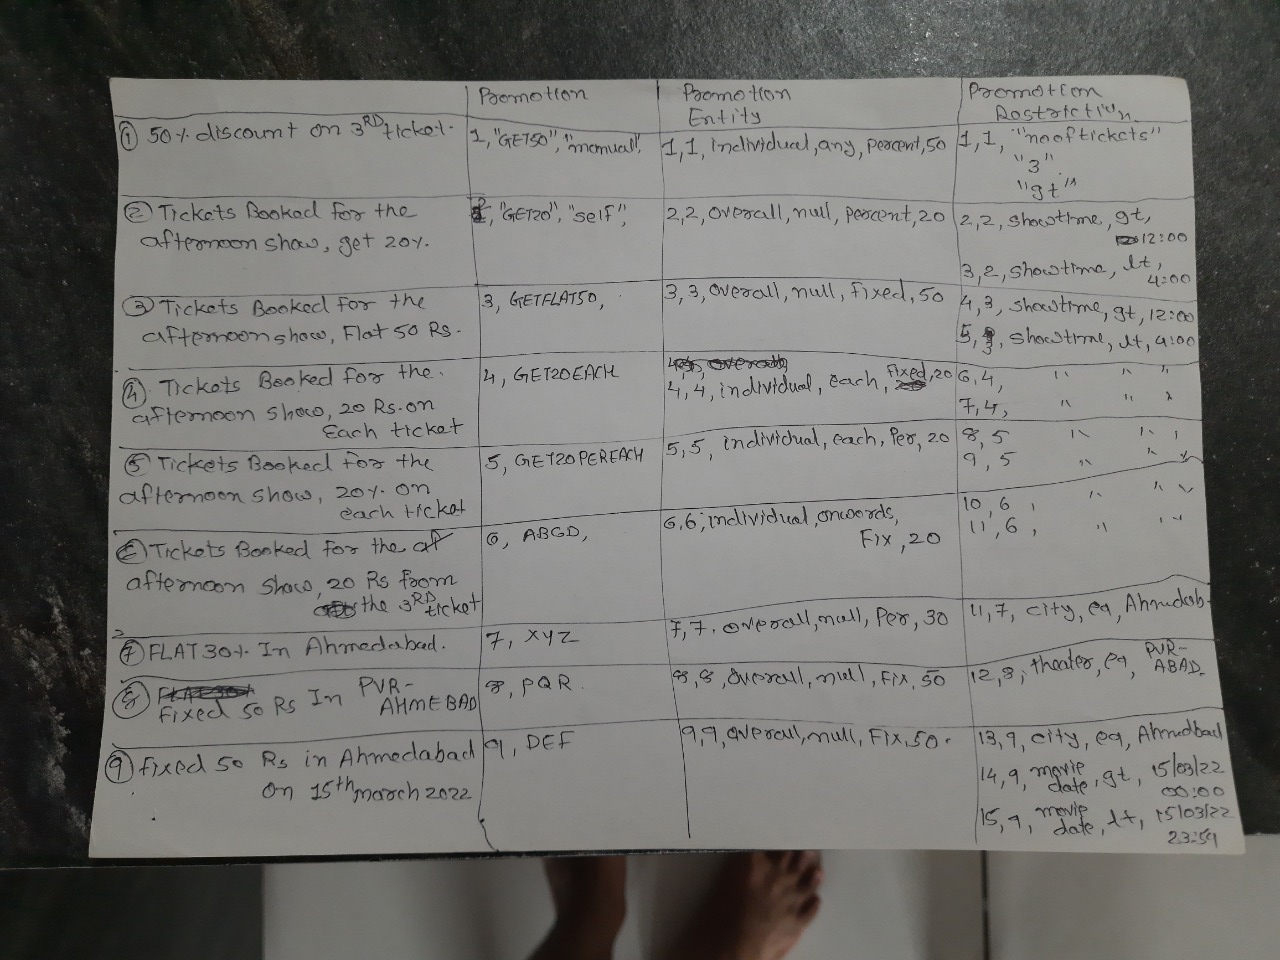 Promotion
Promotion Entity
Promotion Restriction
① 50% discount on 3RD ticket.
1, "GET50", "manual",
1,1, individual, any, percent, 50
1,1, "nooftickets"
"3"
"gt"
② Tickets Booked for the
afternoon show, get 20%.
2, "GET20", "self",
2,2, overall, null, percent, 20
2,2, showtime, gt,
12:00
3,2, showtime, lt,
4:00
③ Tickets Booked for the
afternoon show, Flat 50 Rs.
3, GETFLAT50,
3,3, overall, null, fixed, 50
4,3, showtime, gt, 12:00
5,3, showtime, lt, 4:00
④ Tickets Booked for the.
afternoon show, 20 Rs. on
Each ticket
4, GET20EACH
4,4, individual, each, Fixed, 20
6,4, " " "
7,4, " " "
⑤ Tickets Booked for the
afternoon show, 20% on
each ticket
5, GET20PEREACH
5,5, individual, each, Per, 20
8,5 " " "
9,5 " " "
⑥ Tickets Booked for the
afternoon show, 20 Rs from
the 3RD ticket
6, ABCD,
6,6, individual, onwords,
Fix, 20
10,6, " " "
11,6, " " "
⑦ FLAT 30% In Ahmedabad.
7, XYZ
7,7, overall, null, Per, 30
11,7, city, eq, Ahmdab.
⑧ Fixed 50 Rs In PVR-
AHMEBAD
8, PQR.
8,8, overall, null, Fix, 50
12,8, theater, eq, PVR-
ABAD.
⑨ fixed 50 Rs in Ahmedabad
on 15th march 2022
9, DEF
9,9, overall, null, Fix, 50.
13,9, city, eq, Ahmdbad
14,9, movie date, gt, 15/03/22
00:00
15,9, movie date, lt, 15/03/22
23:59